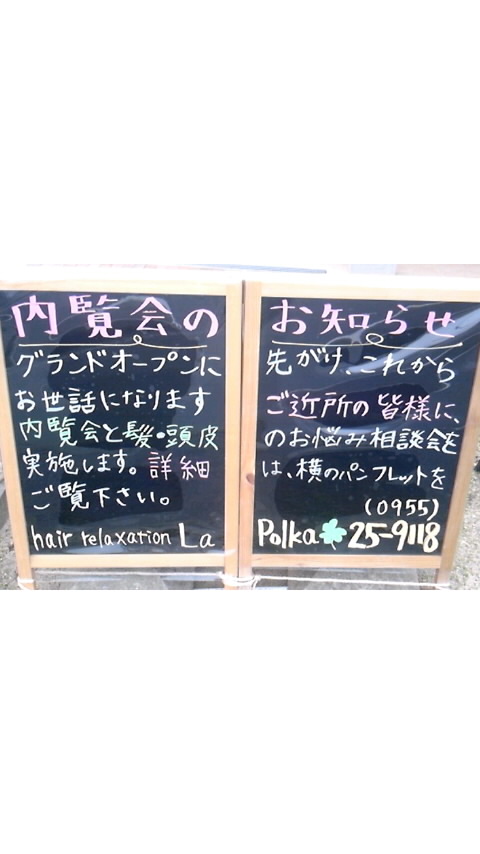 内覧会のお知らせ
グランドオープンに先がけ、これから
お世話になりますご近所の皆様に、
内覧会と髪・頭皮のお悩み相談会を
実施します。詳細は、横のパンフレットを
ご覧下さい。
(0955)
hair relaxation La Polka 25-9118